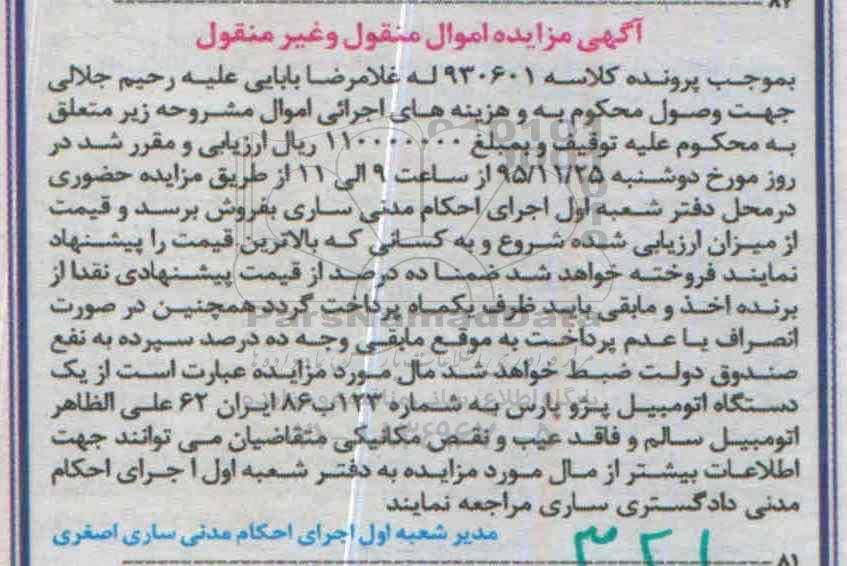 ۸۲
آگهی مزایده اموال منقول وغیر منقول
بموجب پرونده کلاسه ۹۳۰۶۰۱ له غلامرضا بابایی علیه رحیم جلالی
جهت وصول محکوم به و هزینه های اجرائی اموال مشروحه زیر متعلق
به محکوم علیه توقیف و بمبلغ ۱۱۰۰۰۰۰۰۰ ریال ارزیابی و مقرر شد در
روز مورخ دوشنبه ۹۵/۱۱/۲۵ از ساعت ۹ الی ۱۱ از طریق مزایده حضوری
درمحل دفتر شعبه اول اجرای احکام مدنی ساری بفروش برسد و قیمت
از میزان ارزیابی شده شروع و به کسانی که بالاترین قیمت را پیشنهاد
نمایند فروخته خواهد شد ضمنا ده درصد از قیمت پیشنهادی نقدا از
برنده اخذ و مابقی باید ظرف یکماه پرداخت گردد همچنین در صورت
ParsNamadData
انصراف یا عدم پرداخت به موقع مابقی وجه ده درصد سپرده به نفع
صندوق دولت ضبط خواهد شد مال مورد مزایده عبارت است از یک
دستگاه اتومبیل پژو پارس به شماره ۱۲۳ب۸۶ ایران ۶۲ علی الظاهر
اتومبیل سالم و فاقد عیب و نقص مکانیکی متقاضیان می توانند جهت
اطلاعات بیشتر از مال مورد مزایده به دفتر شعبه اول ا جرای احکام
مدنی دادگستری ساری مراجعه نمایند
مدیر شعبه اول اجرای احکام مدنی ساری اصغری
۸۱